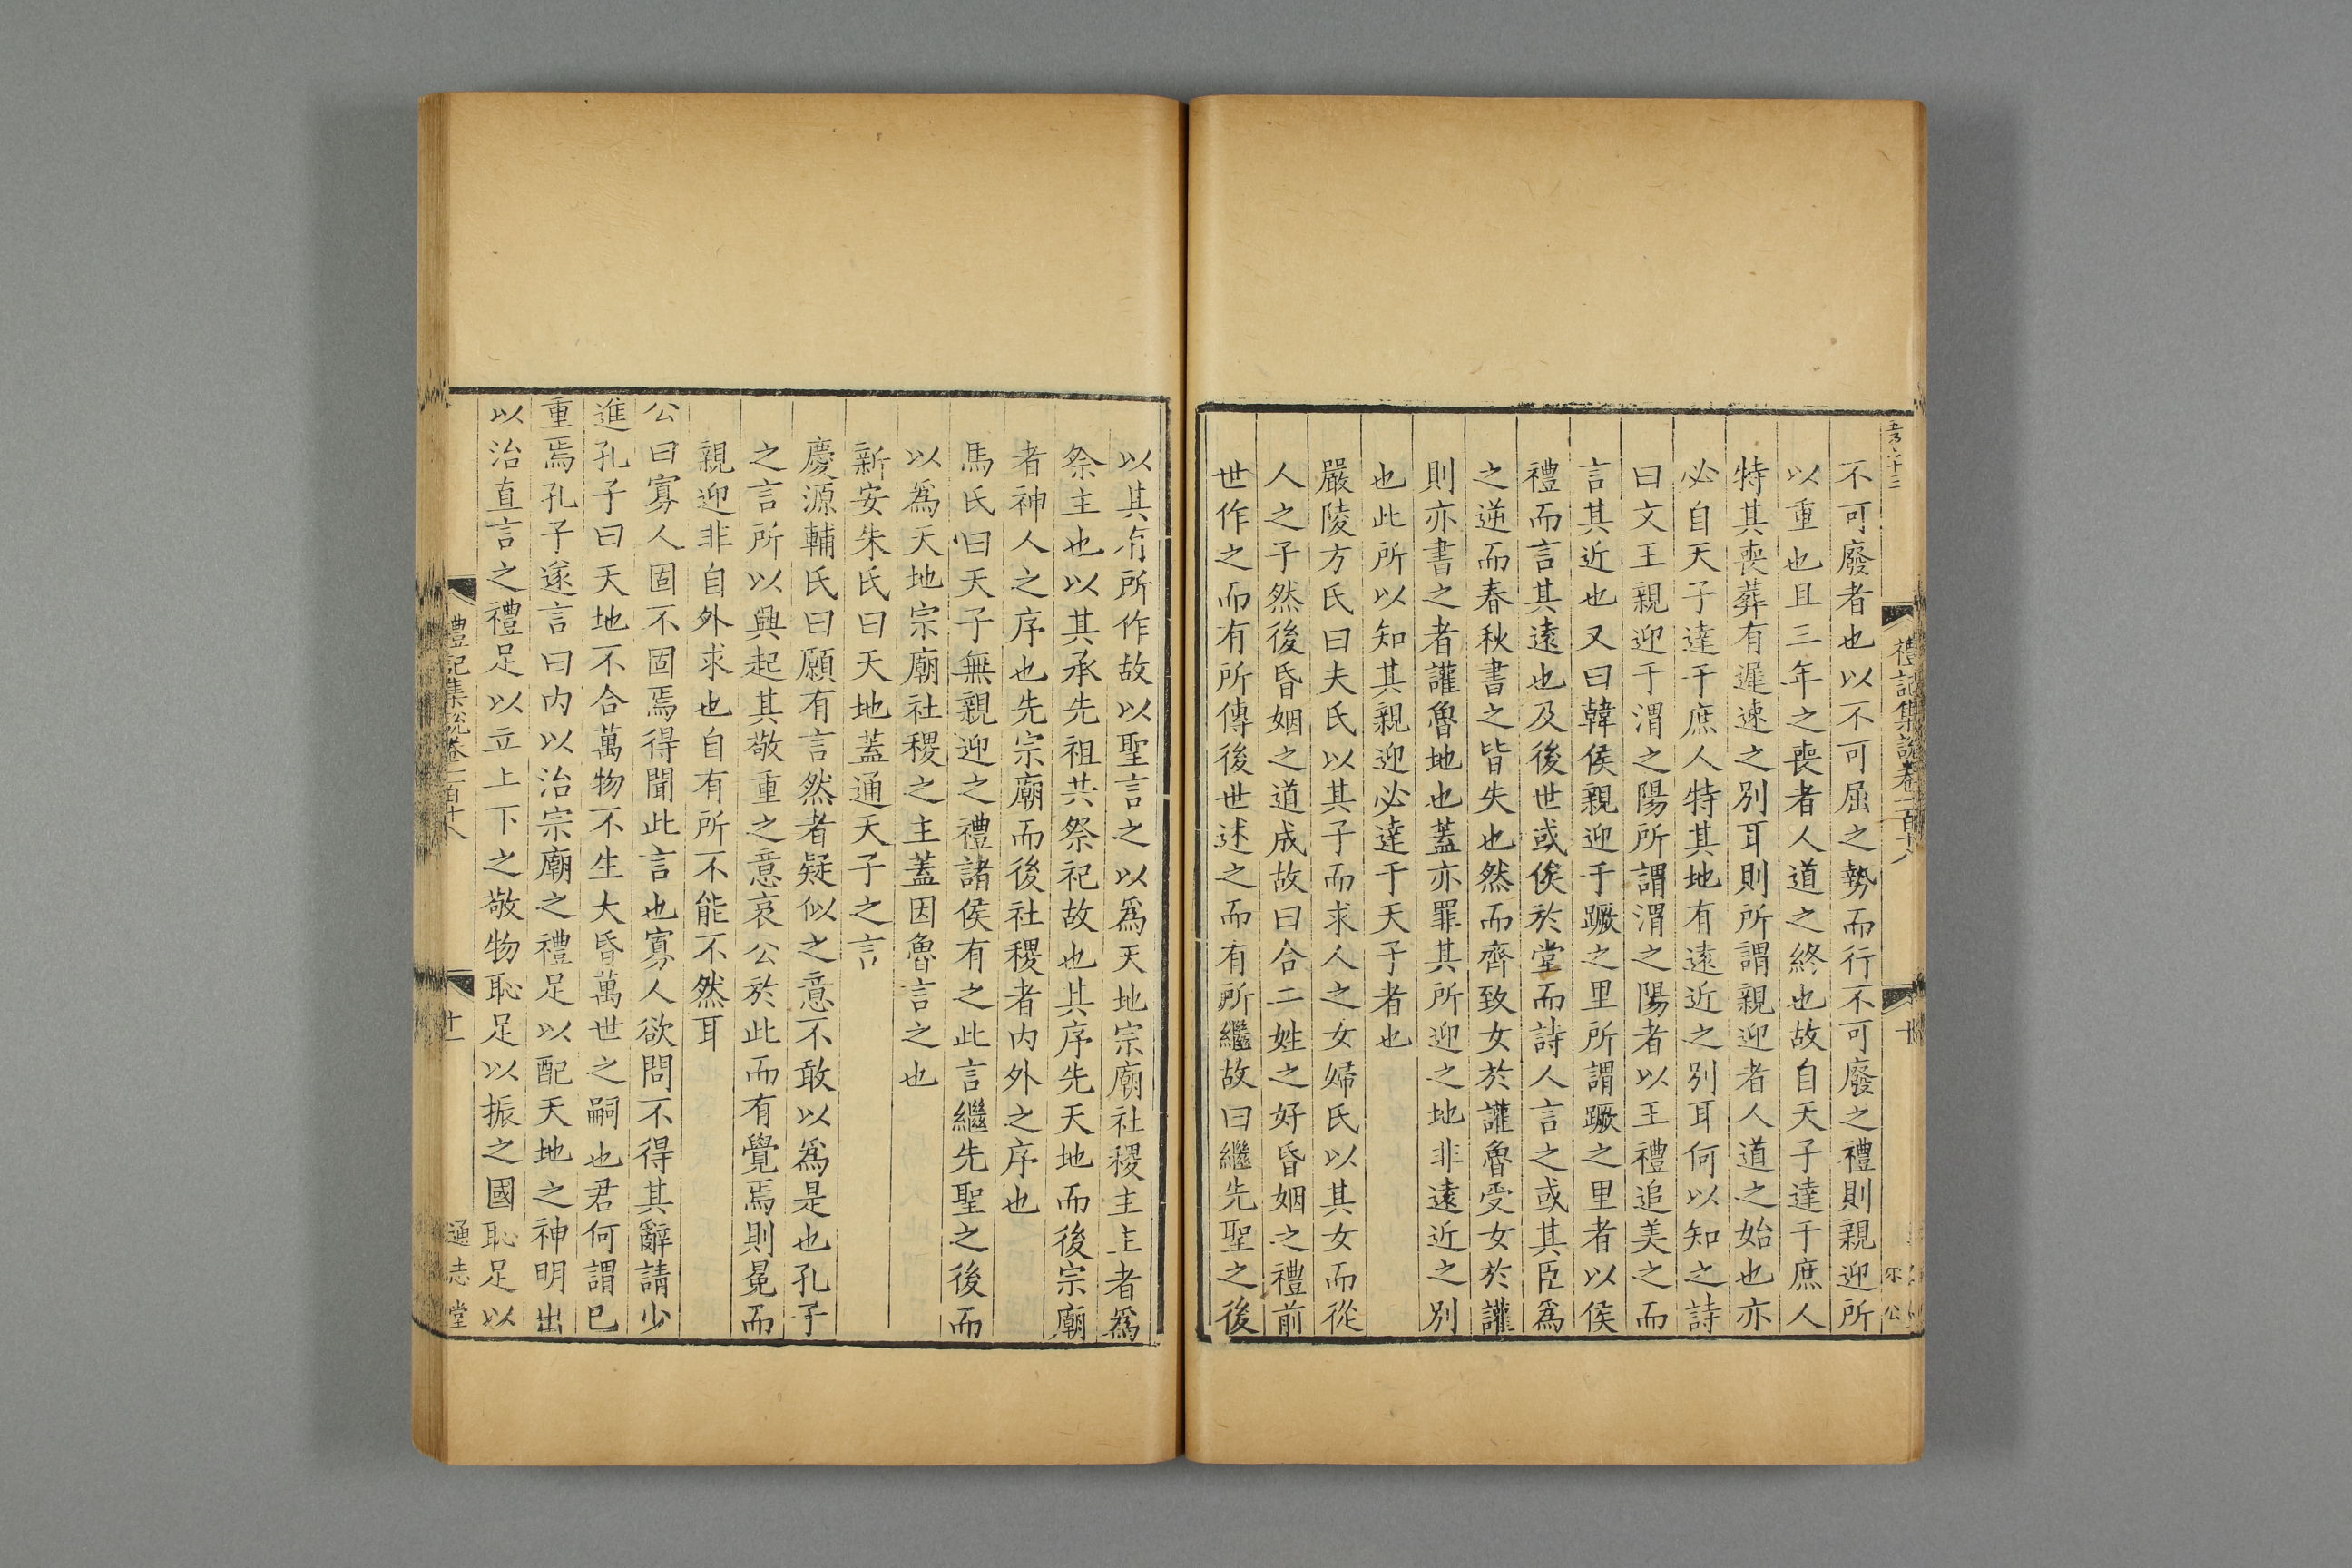 禮記集說卷一百十八
十
不可廢者也以不可屈之勢而行不可廢之禮則親迎所
以重也且三年之喪者人道之終也故自天子達于庶人
特其喪葬有遲速之別耳則所謂親迎者人道之始也亦
必自天子達于庶人特其地有遠近之別耳何以知之詩
曰文王親迎于渭之陽所謂渭之陽者以王禮追美之而
言其近也又曰韓侯親迎于蹶之里所謂蹶之里者以侯
禮而言其遠也及後世或俟於堂而詩人言之或其臣爲
之逆而春秋書之皆失也然而齊致女於讙魯受女於讙
則亦書之者讙魯地也蓋亦罪其所迎之地非遠近之別
也此所以知其親迎必達于天子者也
嚴陵方氏曰夫氏以其子而求人之女婦氏以其女而從
人之子然後昏姻之道成故曰合二姓之好昏姻之禮前
世作之而有所傳後世述之而有所繼故曰繼先聖之後
以其有所作故以聖言之以爲天地宗廟社稷主主者爲
祭主也以其承先祖共祭祀故也其序先天地而後宗廟
者神人之序也先宗廟而後社稷者内外之序也
馬氏曰天子無親迎之禮諸侯有之此言繼先聖之後而
以爲天地宗廟社稷之主蓋因魯言之也
新安朱氏曰天地蓋通天子之言
慶源輔氏曰願有言然者疑似之意不敢以爲是也孔子
之言所以興起其敬重之意哀公於此而有覺焉則冕而
親迎非自外求也自有所不能不然耳
公曰寡人固不固焉得聞此言也寡人欲問不得其辭請少
進孔子曰天地不合萬物不生大昏萬世之嗣也君何謂已
重焉孔子遂言曰内以治宗廟之禮足以配天地之神明出
以治直言之禮足以立上下之敬物恥足以振之國恥足以
禮記集說卷一百十八
十一
通志堂